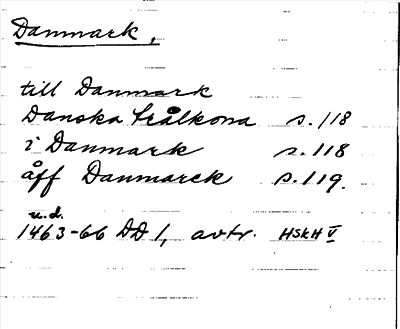 Danmark,
till Danmark
Danska trålkona s. 118
i Danmark s. 118
åff Danmarck s. 119.
u.d.
1463-66 DD 1, avtr. HSKH V